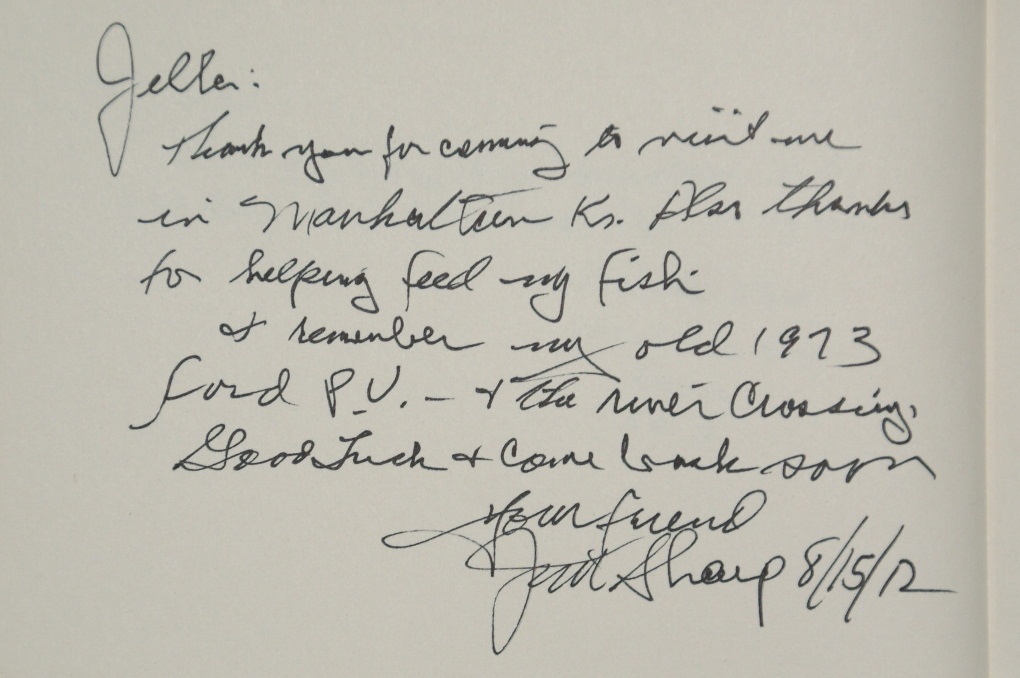 Jelle:
Thank you for coming to visit me
in Manhattan Ks. Also thanks
for helping feed my fish
& remember my old 1973
Ford P.U. - & the river crossing.
Good Luck & come back soon
Your friend
Sharp 8/15/12